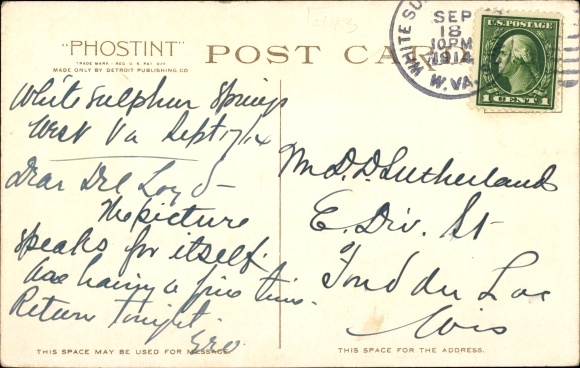 "PHOSTINT"
TRADE MARK - REG. U.S. PAT. OFF.
MADE ONLY BY DETROIT PUBLISHING CO.
POST CARD
WHITE SU
SEP
18
10PM
1914
W. VA.
U.S. POSTAGE
1 CENT 1
White Sulphur Springs
West Va Sept 17/14
Dear
The picture
speaks for itself.
having a fine time.
Return tonight.
Mr D. D. Sutherland
E. Div. St
Fond du Lac
Wis
THIS SPACE MAY BE USED FOR MESSAGE.
THIS SPACE FOR THE ADDRESS.